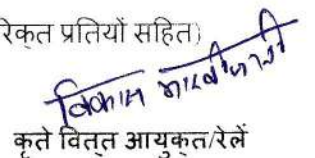 रेक्त प्रतियों सहित)
विकास
कृते वित्त आयुक्त/रेलें